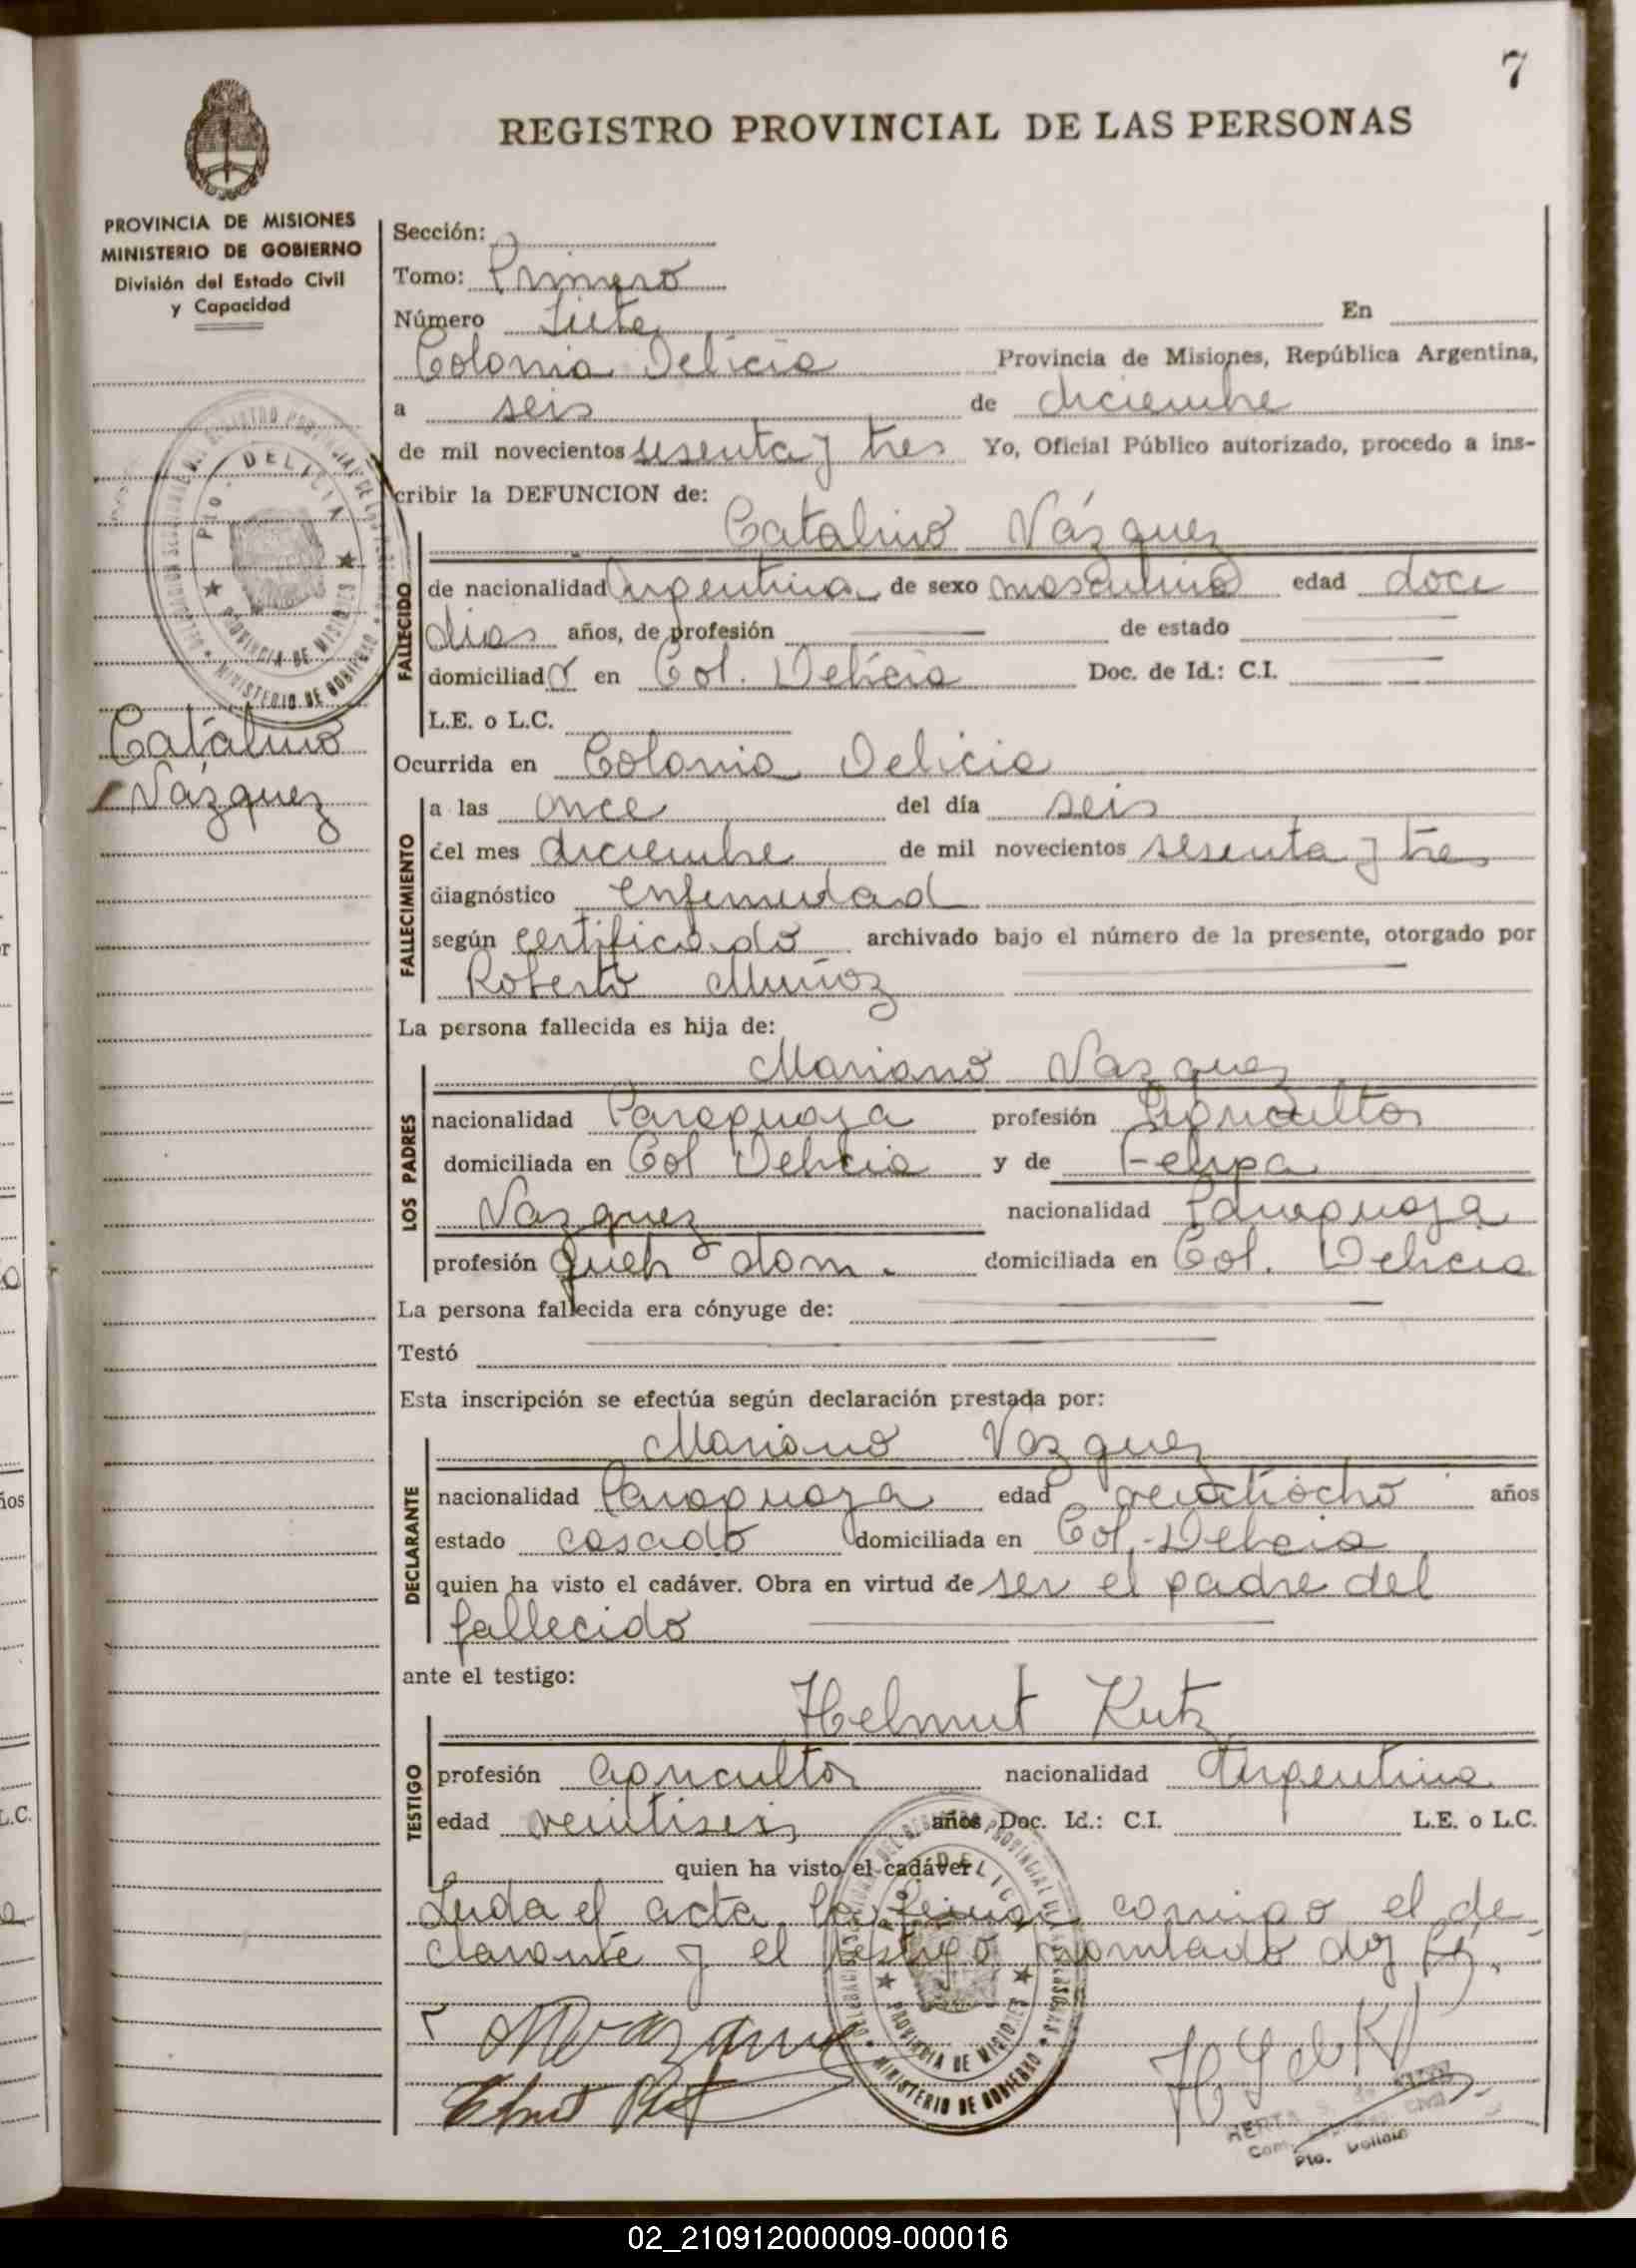 7
REGISTRO PROVINCIAL DE LAS PERSONAS
PROVINCIA DE MISIONES
MINISTERIO DE GOBIERNO
División del Estado Civil
y Capacidad
Sección:
Tomo: Primero
Número Siete En
Colonia Delicia Provincia de Misiones, República Argentina,
a seis de diciembre
de mil novecientos sesenta y tres Yo, Oficial Público autorizado, procedo a ins-
cribir la DEFUNCION de:
Catalino Vázquez
FALLECIDO
de nacionalidad Argentina de sexo masculino edad doce
dias años, de profesión de estado
domiciliado en Col. Delicia Doc. de Id.: C.I.
L.E. o L.C.
Catalino
Vázquez
Ocurrida en Colonia Delicia
FALLECIMIENTO
a las once del día seis
del mes diciembre de mil novecientos sesenta y tres
diagnóstico enfermedad
según certificado archivado bajo el número de la presente, otorgado por
Roberto Muñoz
La persona fallecida es hija de:
Mariano Vazquez
LOS PADRES
nacionalidad Paraguaya profesión Agricultor
domiciliada en Col Delicia y de Felipa
Vazquez nacionalidad Paraguaya
profesión queh dom. domiciliada en Col. Delicia
La persona fallecida era cónyuge de:
Testó
Esta inscripción se efectúa según declaración prestada por:
Mariano Vazquez
DECLARANTE
nacionalidad Paraguaya edad veintiocho años
estado casado domiciliada en Col. Delicia
quien ha visto el cadáver. Obra en virtud de ser el padre del
fallecido
ante el testigo:
Helmut Kutz
TESTIGO
profesión agricultor nacionalidad Argentina
edad veintiseis años Doc. Id.: C.I. L.E. o L.C.
quien ha visto el cadáver
Leida el acta, la firman conmigo el de
clarante y el testigo nombrado doy fé.
PTO. DELICIA
PROVINCIA DE MISIONES
MINISTERIO DE GOBIERNO
PROVINCIA DE MISIONES
MINISTERIO DE GOBIERNO
Pto. Delicia
02_210912000009-000016